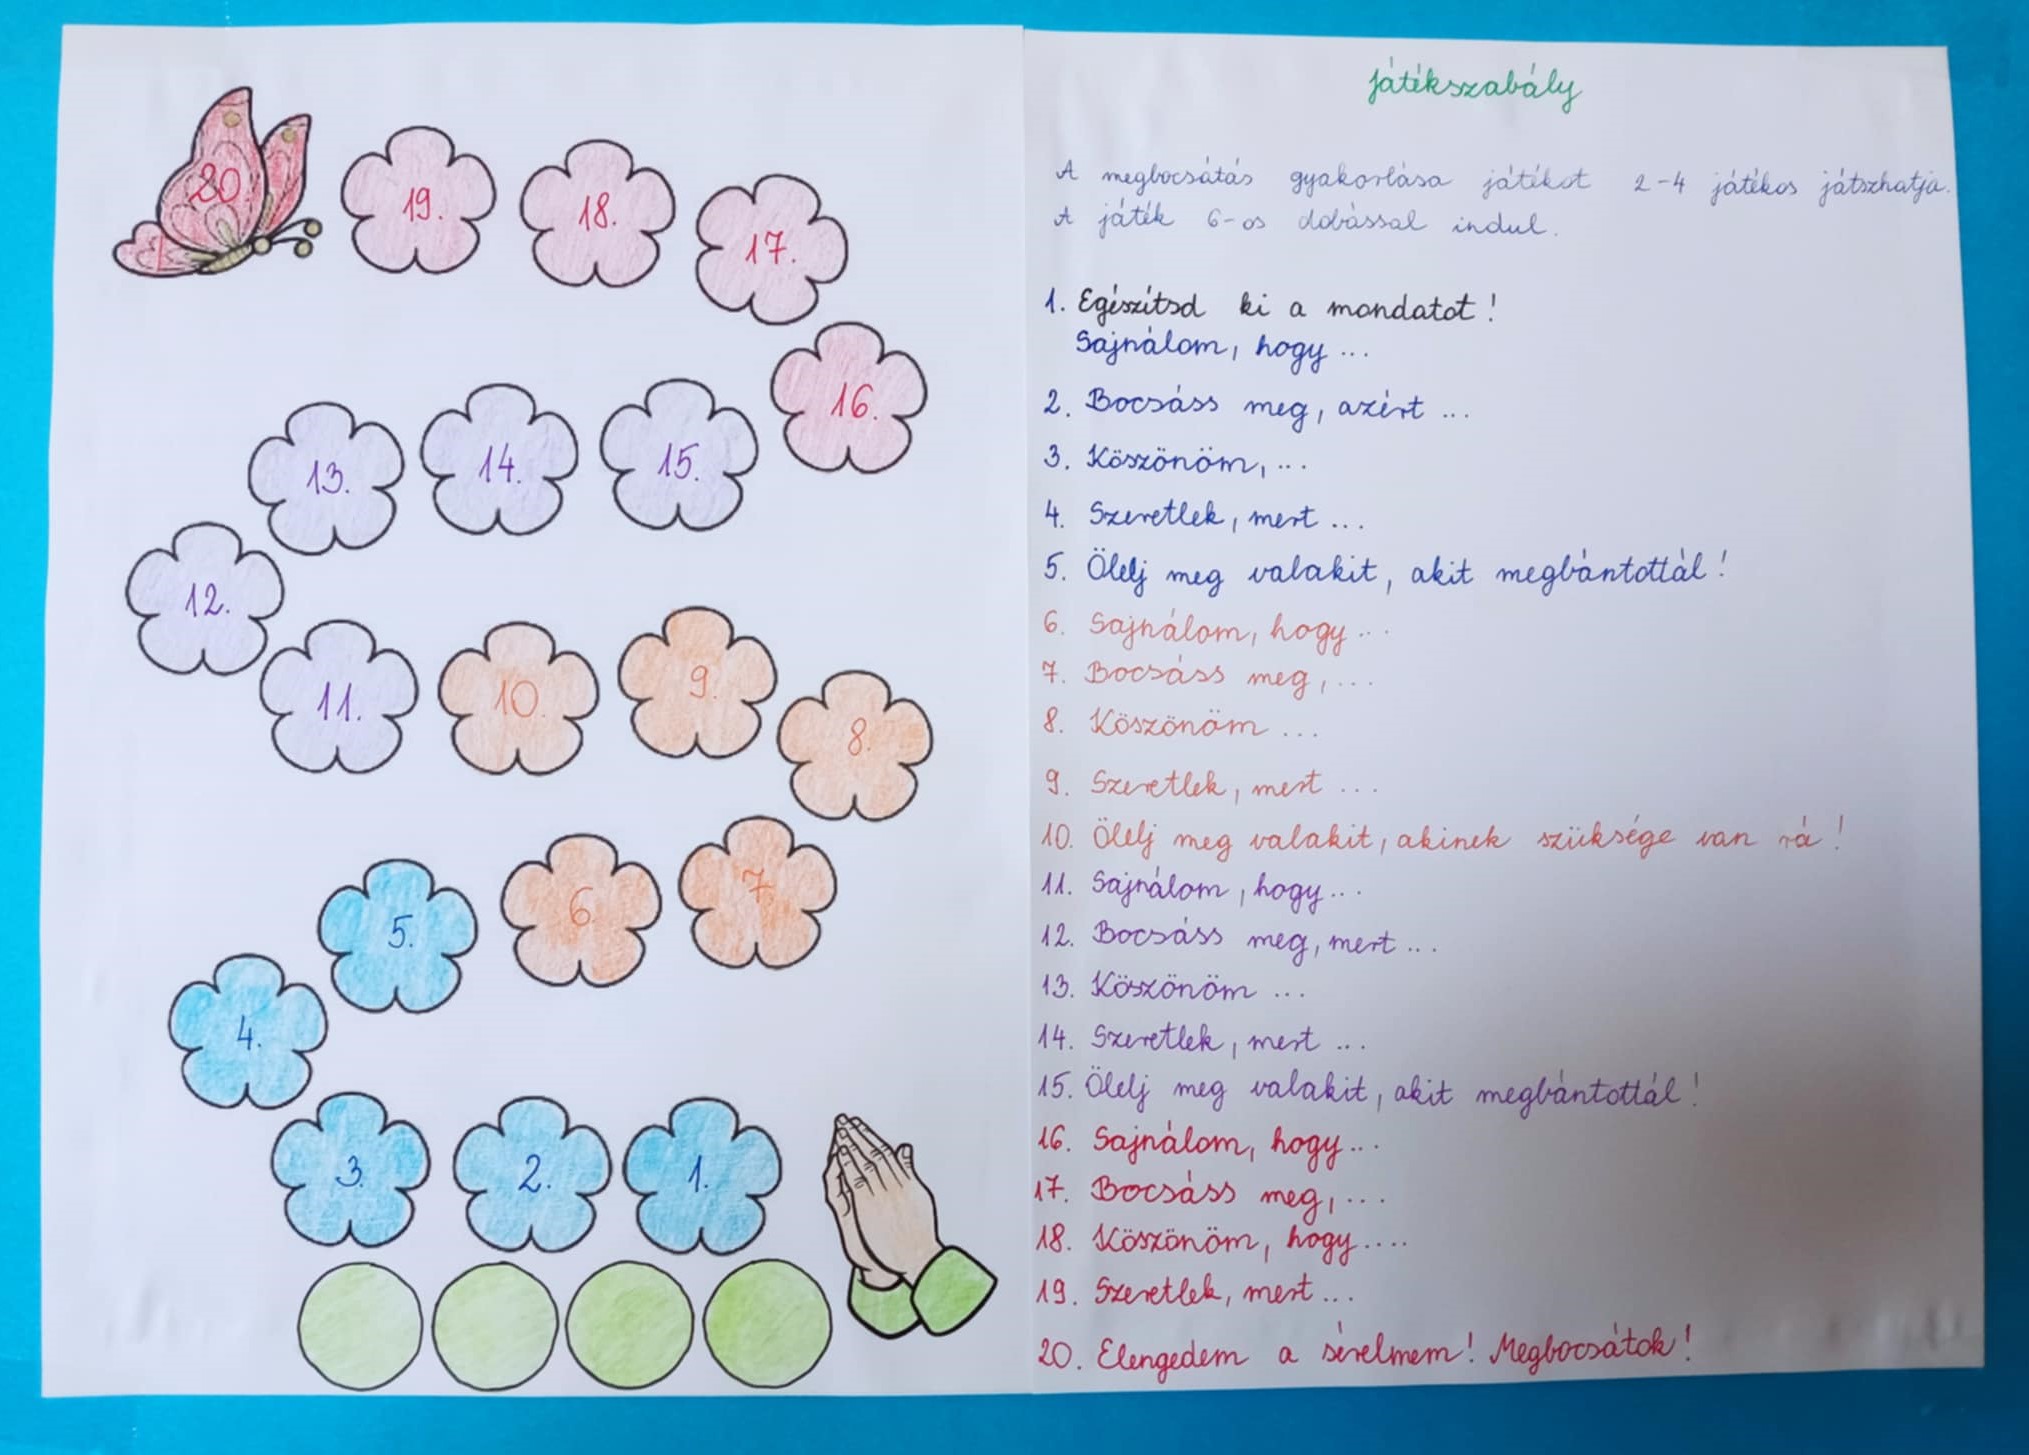 20.
19.
18.
17.
16.
13.
14.
15.
12.
11.
10.
9.
8.
7.
6.
5.
4.
3.
2.
1.
játékszabály
A megbocsátás gyakorlása játékot 2-4 játékos játszhatja.
A játék 6-os dobással indul.
1. Egészítsd ki a mondatot!
Sajnálom, hogy ...
2. Bocsáss meg, azért ...
3. Köszönöm, ...
4. Szeretlek, mert ...
5. Ölelj meg valakit, akit megbántottál!
6. Sajnálom, hogy ...
7. Bocsáss meg, ...
8. Köszönöm ...
9. Szeretlek, mert ...
10. Ölelj meg valakit, akinek szüksége van rá!
11. Sajnálom, hogy ...
12. Bocsáss meg, mert ...
13. Köszönöm ...
14. Szeretlek, mert ...
15. Ölelj meg valakit, akit megbántottál!
16. Sajnálom, hogy ...
17. Bocsáss meg, ...
18. Köszönöm, hogy ....
19. Szeretlek, mert ...
20. Elengedem a sérelmem! Megbocsátok!